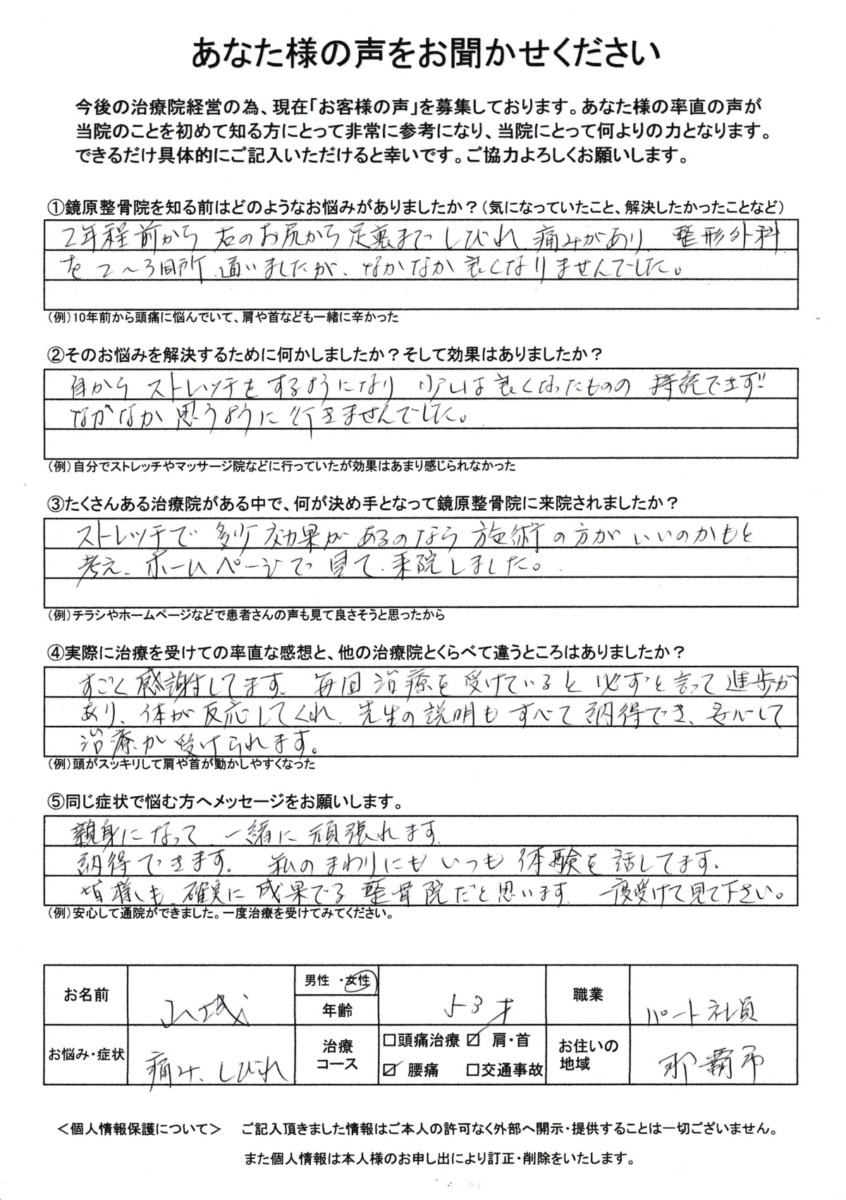 あなた様の声をお聞かせください
今後の治療院経営の為、現在「お客様の声」を募集しております。あなた様の率直の声が
当院のことを初めて知る方にとって非常に参考になり、当院にとって何よりの力となります。
できるだけ具体的にご記入いただけると幸いです。ご協力よろしくお願いします。
①鏡原整骨院を知る前はどのようなお悩みがありましたか？（気になっていたこと、解決したかったことなど）
2年程前から 右のお尻から足裏まで しびれ 痛みがあり 整形外科
を2～3箇所 通いましたが、なかなか良くなりませんでした。
（例）10年前から頭痛に悩んでいて、肩や首なども一緒に辛かった
②そのお悩みを解決するために何かしましたか？そして効果はありましたか？
自から ストレッチをするようになり 少しは良くなったものの 持続できず
なかなか 思うように行きませんでした。
（例）自分でストレッチやマッサージ院などに行っていたが効果はあまり感じられなかった
③たくさんある治療院がある中で、何が決め手となって鏡原整骨院に来院されましたか？
ストレッチで 多少 効果が あるのなら 施術の方が いいのかもと
考え、ホームページで 見て 来院しました。
（例）チラシやホームページなどで患者さんの声も見て良さそうと思ったから
④実際に治療を受けての率直な感想と、他の治療院とくらべて違うところはありましたか？
すごく 感謝してます。毎回 治療を 受けていると 必ずと言って 進歩が
あり、体が 反応してくれ 先生の 説明も すべて 納得でき、安心して
治療が 受けられます。
（例）頭がスッキリして肩や首が動かしやすくなった
⑤同じ症状で悩む方へメッセージをお願いします。
親身になって 一緒に 頑張れます
納得できます。 私のまわりにも いつも 体験を 話してます。
皆様も 確実に 成果でる 整骨院だと思います 一度受けて見て下さい。
（例）安心して通院ができました。一度治療を受けてみてください。
お名前 山城 男性 ・ 女性 年齢 53才 職業 パート社員
お悩み・症状 痛み、しびれ 治療コース □頭痛治療 ☑ 肩・首 ☑ 腰痛 □交通事故 お住いの地域 那覇市
＜個人情報保護について＞ ご記入頂きました情報はご本人の許可なく外部へ開示・提供することは一切ございません。
また個人情報は本人様のお申し出により訂正・削除をいたします。